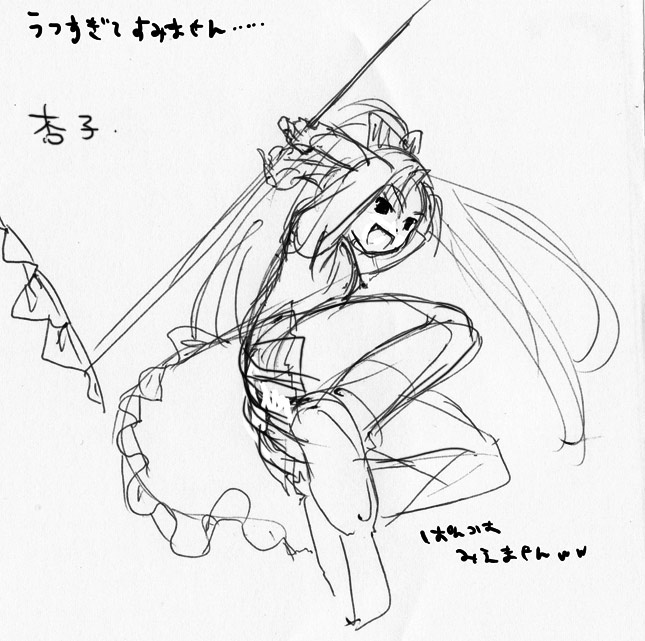 うつすぎてすみません……
杏子.
ぱんつは
みえませんww